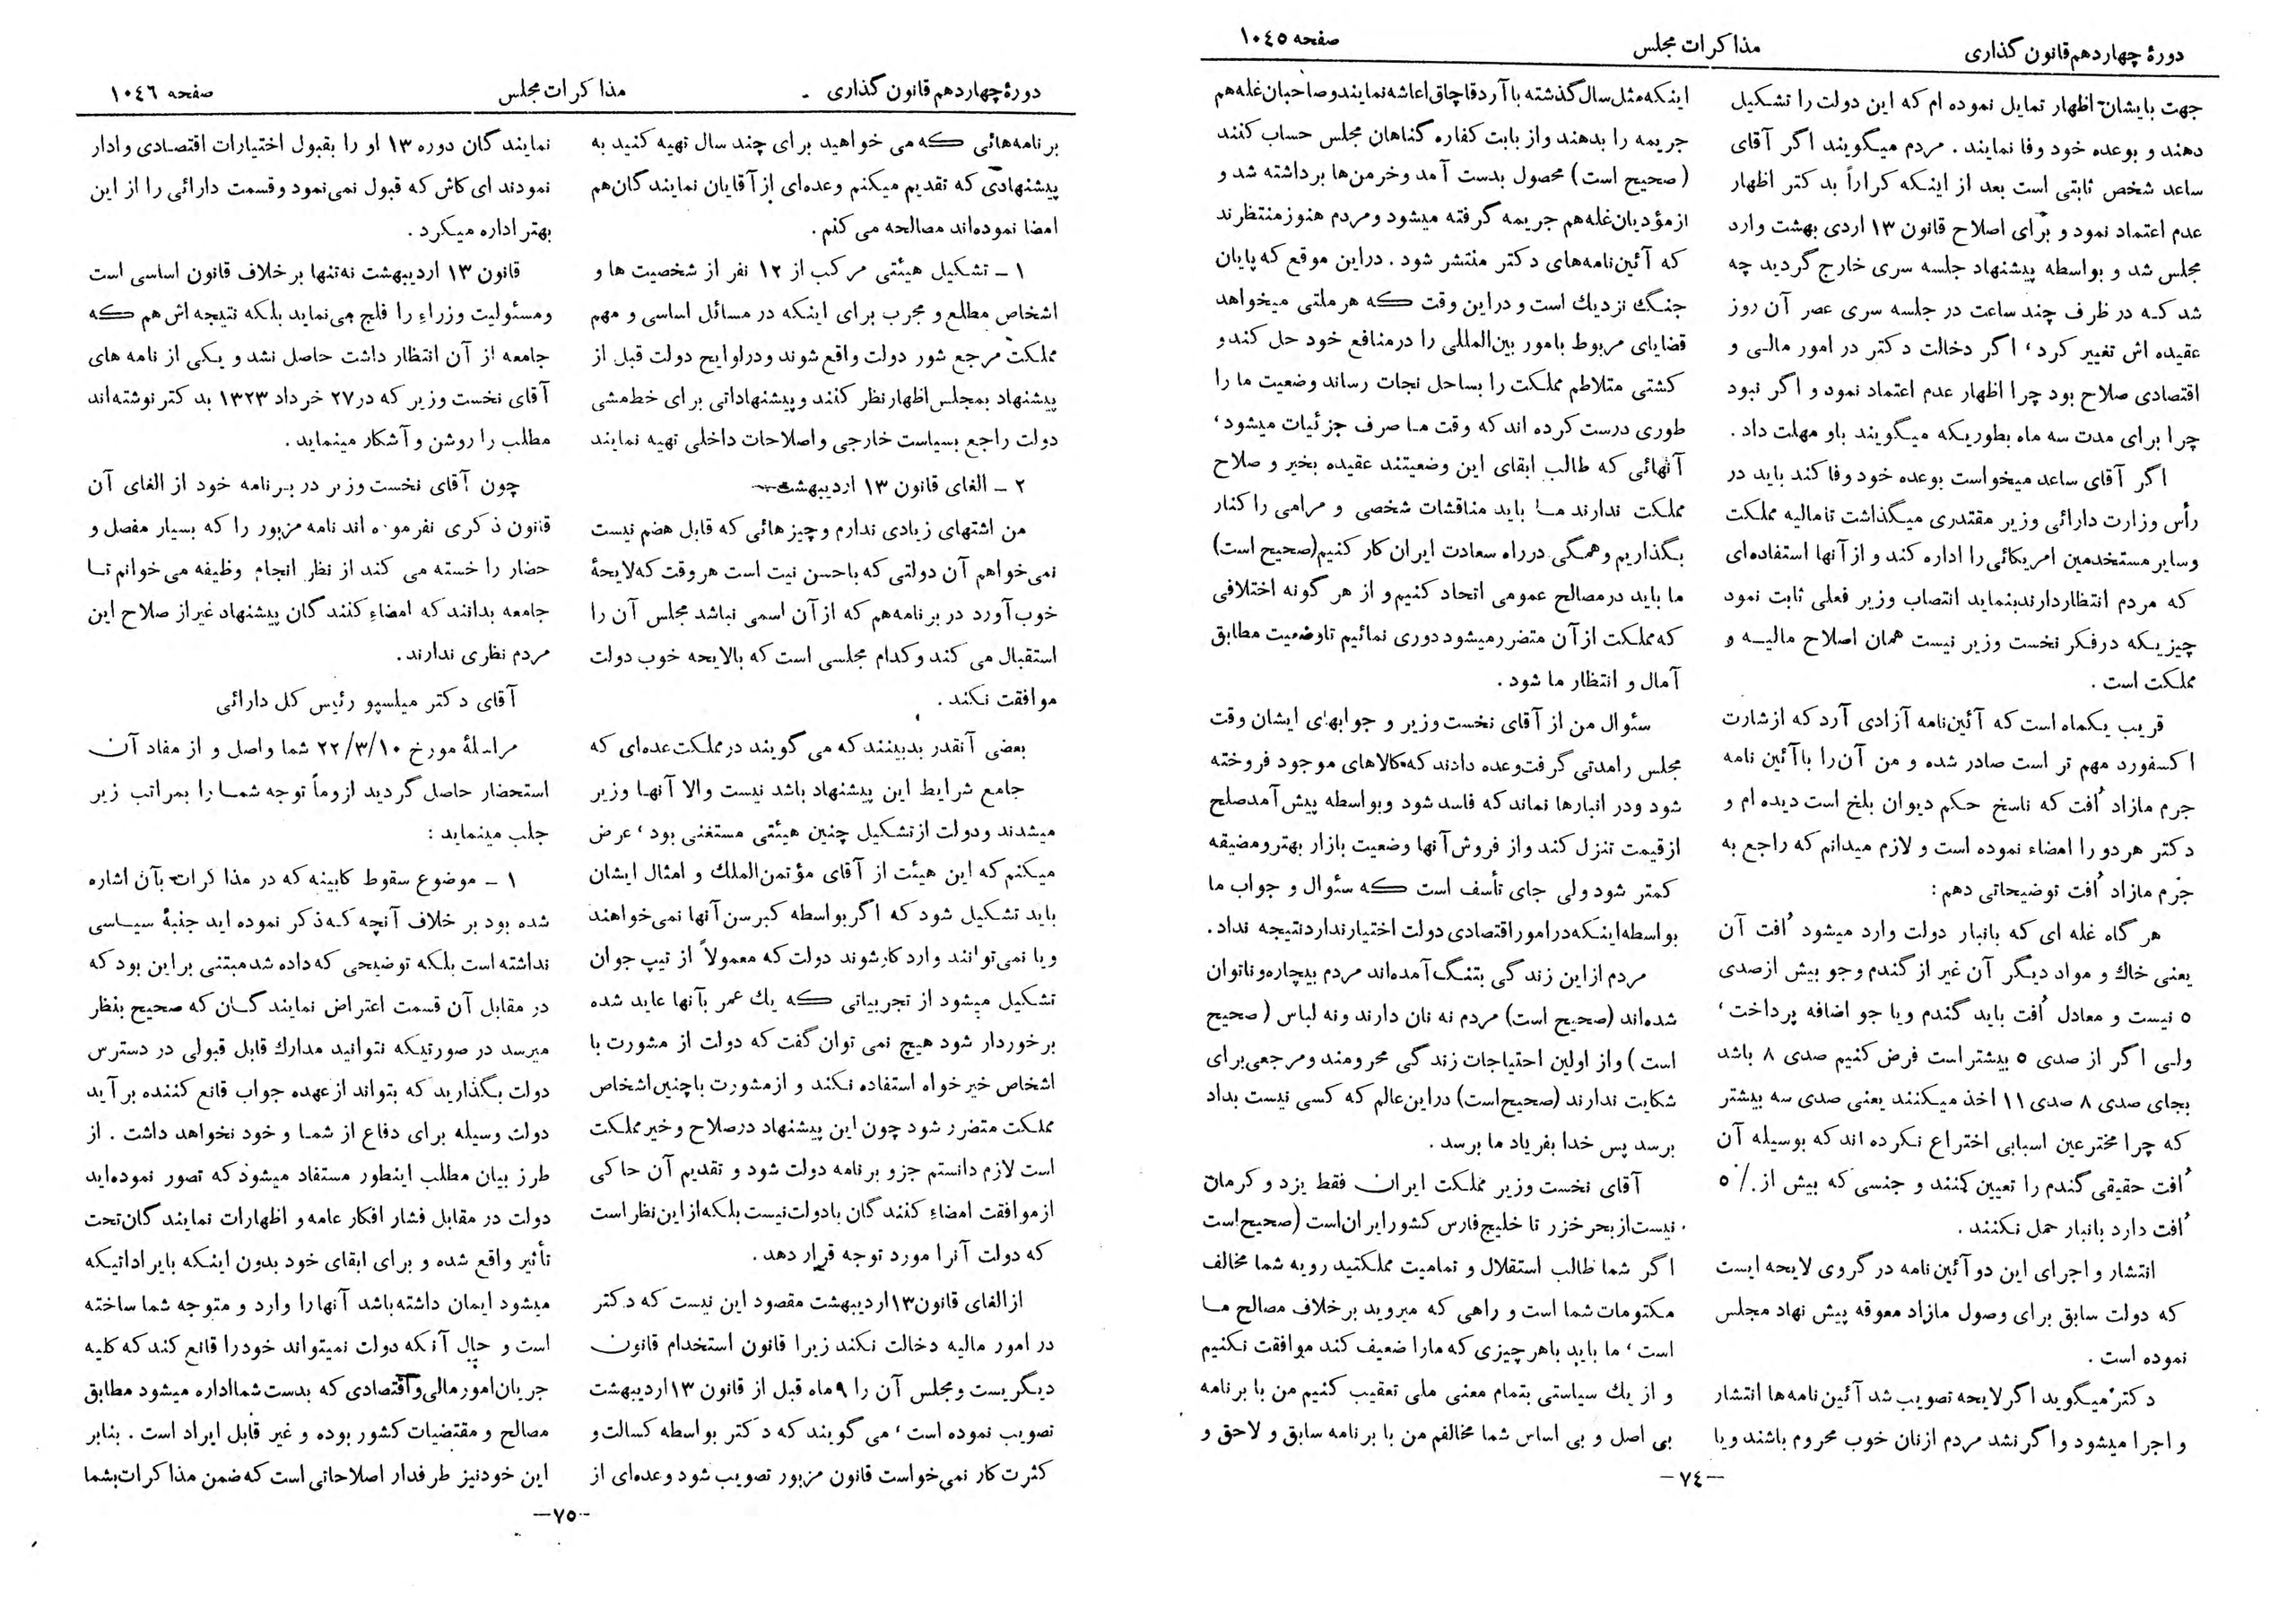 دورهٔ چهاردهم قانون گذاری
مذاکرات مجلس
صفحه ۱۰٤٥
جهت بایشان اظهار تمایل نموده ام که این دولت را تشکیل
دهند و بوعده خود وفا نمایند . مردم میگویند اگر آقای
ساعد شخص ثابتی است بعد از اینکه کراراً بدکتر اظهار
عدم اعتماد نمود و برای اصلاح قانون ۱۳ اردی بهشت وارد
مجلس شد و بواسطه پیشنهاد جلسه سری خارج گردید چه
شد که در ظرف چند ساعت در جلسه سری عصر آن روز
عقیده اش تغییر کرد، اگر دخالت دکتر در امور مالی و
اقتصادی صلاح بود چرا اظهار عدم اعتماد نمود و اگر نبود
چرا برای مدت سه ماه بطوریکه میگویند باو مهلت داد .
اگر آقای ساعد میخواست بوعده خود وفا کند باید در
رأس وزارت دارائی وزیر مقتدری میگذاشت تا مالیه مملکت
وسایر مستخدمین امریکائی را اداره کند و از آنها استفاده‌ای
که مردم انتظار دارند بنماید انتصاب وزیر فعلی ثابت نمود
چیزیکه در فکر نخست وزیر نیست همان اصلاح مالیه و
مملکت است .
قریب یکماه است که آئین‌نامه آزادی آرد که از شارت
اکسفورد مهم تر است صادر شده و من آن را با آئین نامه
جرم مازاد اُفت که ناسخ حکم دیوان بلخ است دیده ام و
دکتر هر دو را امضاء نموده است و لازم میدانم که راجع به
جرم مازاد اُفت توضیحاتی دهم :
هر گاه غله ای که بانبار دولت وارد میشود اُفت آن
یعنی خاك و مواد دیگر آن غیر از گندم وجو بیش از صدی
۵ نیست و معادل اُفت باید گندم ویا جو اضافه پرداخت ،
ولی اگر از صدی ۵ بیشتر است فرض کنیم صدی ۸ باشد
بجای صدی ۸ صدی ۱۱ اخذ میکنند یعنی صدی سه بیشتر
که چرا مخترعین اسبابی اختراع نکرده اند که بوسیله آن
اُفت حقیقی گندم را تعیین کنند و جنسی که بیش از ۵٪
اُفت دارد بانبار حمل نکنند .
انتشار و اجرای این دو آئین نامه در گروی لایحه ایست
که دولت سابق برای وصول مازاد معوقه پیش نهاد مجلس
نموده است .
دکتر میگوید اگر لایحه تصویب شد آئین نامه‌ها انتشار
و اجرا میشود و اگر نشد مردم از نان خوب محروم باشند ویا
اینکه مثل سال گذشته با آرد قاچاق اعاشه نمایند و صاحبان غله هم
جریمه را بدهند و از بابت کفاره گناهان مجلس حساب کنند
(صحیح است) محصول بدست آمد و خرمن‌ها برداشته شد و
از مؤدیان غله هم جریمه گرفته میشود و مردم هنوز منتظرند
که آئین‌نامه‌های دکتر منتشر شود . در این موقع که پایان
جنگ نزدیك است و در این وقت که هر ملتی میخواهد
قضایای مربوط بامور بین‌المللی را در منافع خود حل کند و
کشتی متلاطم مملکت را بساحل نجات رساند وضعیت ما را
طوری درست کرده اند که وقت ما صرف جزئیات میشود ،
آنهائی که طالب ابقای این وضعیتند عقیده بخیر و صلاح
مملکت ندارند ما باید مناقشات شخصی و مرامی را کنار
بگذاریم و همگی در راه سعادت ایران کار کنیم (صحیح است)
ما باید در مصالح عمومی اتحاد کنیم و از هر گونه اختلافی
که مملکت از آن متضرر میشود دوری نمائیم تا وضعیت مطابق
آمال و انتظار ما شود .
سئوال من از آقای نخست وزیر و جوابهای ایشان وقت
مجلس را مدتی گرفت و وعده دادند که کالاهای موجود فروخته
شود و در انبارها نماند که فاسد شود و بواسطه پیش آمد صلح
از قیمت تنزل کند و از فروش آنها وضعیت بازار بهتر و مضیقه
کمتر شود ولی جای تأسف است که سئوال و جواب ما
بواسطه اینکه در امور اقتصادی دولت اختیار ندارد نتیجه نداد .
مردم از این زندگی بتنگ آمده‌اند مردم بیچاره و ناتوان
شده‌اند (صحیح است) مردم نه نان دارند و نه لباس (صحیح
است) و از اولین احتیاجات زندگی محرومند و مرجعی برای
شکایت ندارند (صحیح است) در این عالم که کسی نیست بداد
برسد پس خدا بفریاد ما برسد .
آقای نخست وزیر مملکت ایران فقط یزد و کرمان
نیست از بحر خزر تا خلیج فارس کشور ایران است (صحیح است
اگر شما طالب استقلال و تمامیت مملکتید رویه شما مخالف
مکتومات شما است و راهی که میروید بر خلاف مصالح ما
است ، ما باید با هر چیزی که ما را ضعیف کند موافقت نکنیم
و از یك سیاستی بتمام معنی ملی تعقیب کنیم من با برنامه
بی اصل و بی اساس شما مخالفم من با برنامه سابق و لاحق و
-٧٤-
دورهٔ چهاردهم قانون گذاری
مذاکرات مجلس
صفحه ۱۰٤٦
برنامه‌هائی که می خواهید برای چند سال تهیه کنید به
پیشنهادی که تقدیم میکنم و عده‌ای از آقایان نمایندگان هم
امضا نموده‌اند مصالحه می کنم .
۱ ـ تشکیل هیئتی مرکب از ۱۲ نفر از شخصیت ها و
اشخاص مطلع و مجرب برای اینکه در مسائل اساسی و مهم
مملکت مرجع شور دولت واقع شوند و در لوایح دولت قبل از
پیشنهاد بمجلس اظهار نظر کنند و پیشنهاداتی برای خط‌مشی
دولت راجع بسیاست خارجی و اصلاحات داخلی تهیه نمایند
۲ ـ الغای قانون ۱۳ اردیبهشت
من اشتهای زیادی ندارم و چیزهائی که قابل هضم نیست
نمی‌خواهم آن دولتی که با حسن نیت است هر وقت که لایحهٔ
خوب آورد در برنامه هم که از آن اسمی نباشد مجلس آن را
استقبال می کند و کدام مجلسی است که بالایحه خوب دولت
موافقت نکند .
بعضی آنقدر بدبینند که می گویند در مملکت عده‌ای که
جامع شرایط این پیشنهاد باشد نیست والا آنها وزیر
میشدند و دولت از تشکیل چنین هیئتی مستغنی بود ، عرض
میکنم که این هیئت از آقای مؤتمن‌الملك و امثال ایشان
باید تشکیل شود که اگر بواسطه کبر سن آنها نمی‌خواهند
ویا نمی‌توانند وارد کار شوند دولت که معمولاً از تیپ جوان
تشکیل میشود از تجربیاتی که یك عمر بآنها عاید شده
برخوردار شود هیچ نمی توان گفت که دولت از مشورت با
اشخاص خیرخواه استفاده نکند و از مشورت با چنین اشخاص
مملکت متضرر شود چون این پیشنهاد در صلاح و خیر مملکت
است لازم دانستم جزو برنامه دولت شود و تقدیم آن حاکی
از موافقت امضاء کنندگان با دولت نیست بلکه از این نظر است
که دولت آنرا مورد توجه قرار دهد .
از الغای قانون ۱۳ اردیبهشت مقصود این نیست که دکتر
در امور مالیه دخالت نکند زیرا قانون استخدام قانون
دیگریست و مجلس آن را ۹ ماه قبل از قانون ۱۳ اردیبهشت
تصویب نموده است ، می گویند که دکتر بواسطه کسالت و
کثرت کار نمی‌خواست قانون مزبور تصویب شود و عده‌ای از
نمایندگان دوره ۱۳ او را بقبول اختیارات اقتصادی وادار
نمودند ای کاش که قبول نمی‌نمود وقسمت دارائی را از این
بهتر اداره میکرد .
قانون ۱۳ اردیبهشت نه تنها بر خلاف قانون اساسی است
و مسئولیت وزراء را فلج می‌نماید بلکه نتیجه اش هم که
جامعه از آن انتظار داشت حاصل نشد و یکی از نامه های
آقای نخست وزیر که در ۲۷ خرداد ۱۳۲۳ بدکتر نوشته‌اند
مطلب را روشن و آشکار مینماید .
چون آقای نخست وزیر در برنامه خود از الغای آن
قانون ذکری نفرموده اند نامه مزبور را که بسیار مفصل و
حضار را خسته می کند از نظر انجام وظیفه می خوانم تا
جامعه بدانند که امضاء کنندگان پیشنهاد غیر از صلاح این
مردم نظری ندارند .
آقای دکتر میلسپو رئیس کل دارائی
مراسلهٔ مورخ ۲۲/۳/۱۰ شما واصل و از مفاد آن
استحضار حاصل گردید لزوماً توجه شما را بمراتب زیر
جلب مینماید :
۱ ـ موضوع سقوط کابینه که در مذاکرات بآن اشاره
شده بود بر خلاف آنچه که ذکر نموده اید جنبهٔ سیاسی
نداشته است بلکه توضیحی که داده شد مبتنی بر این بود که
در مقابل آن قسمت اعتراض نمایندگان که صحیح بنظر
میرسد در صورتیکه نتوانید مدارك قابل قبولی در دسترس
دولت بگذارید که بتواند از عهده جواب قانع کننده بر آید
دولت وسیله برای دفاع از شما و خود نخواهد داشت . از
طرز بیان مطلب اینطور مستفاد میشود که تصور نموده‌اید
دولت در مقابل فشار افکار عامه و اظهارات نمایندگان تحت
تأثیر واقع شده و برای ابقای خود بدون اینکه بایراداتیکه
میشود ایمان داشته باشد آنها را وارد و متوجه شما ساخته
است و حال آنکه دولت نمیتواند خود را قانع کند که کلیه
جریان امور مالی و اقتصادی که بدست شما اداره میشود مطابق
مصالح و مقتضیات کشور بوده و غیر قابل ایراد است . بنابر
این خود نیز طرفدار اصلاحاتی است که ضمن مذاکرات بشما
-۷۵-